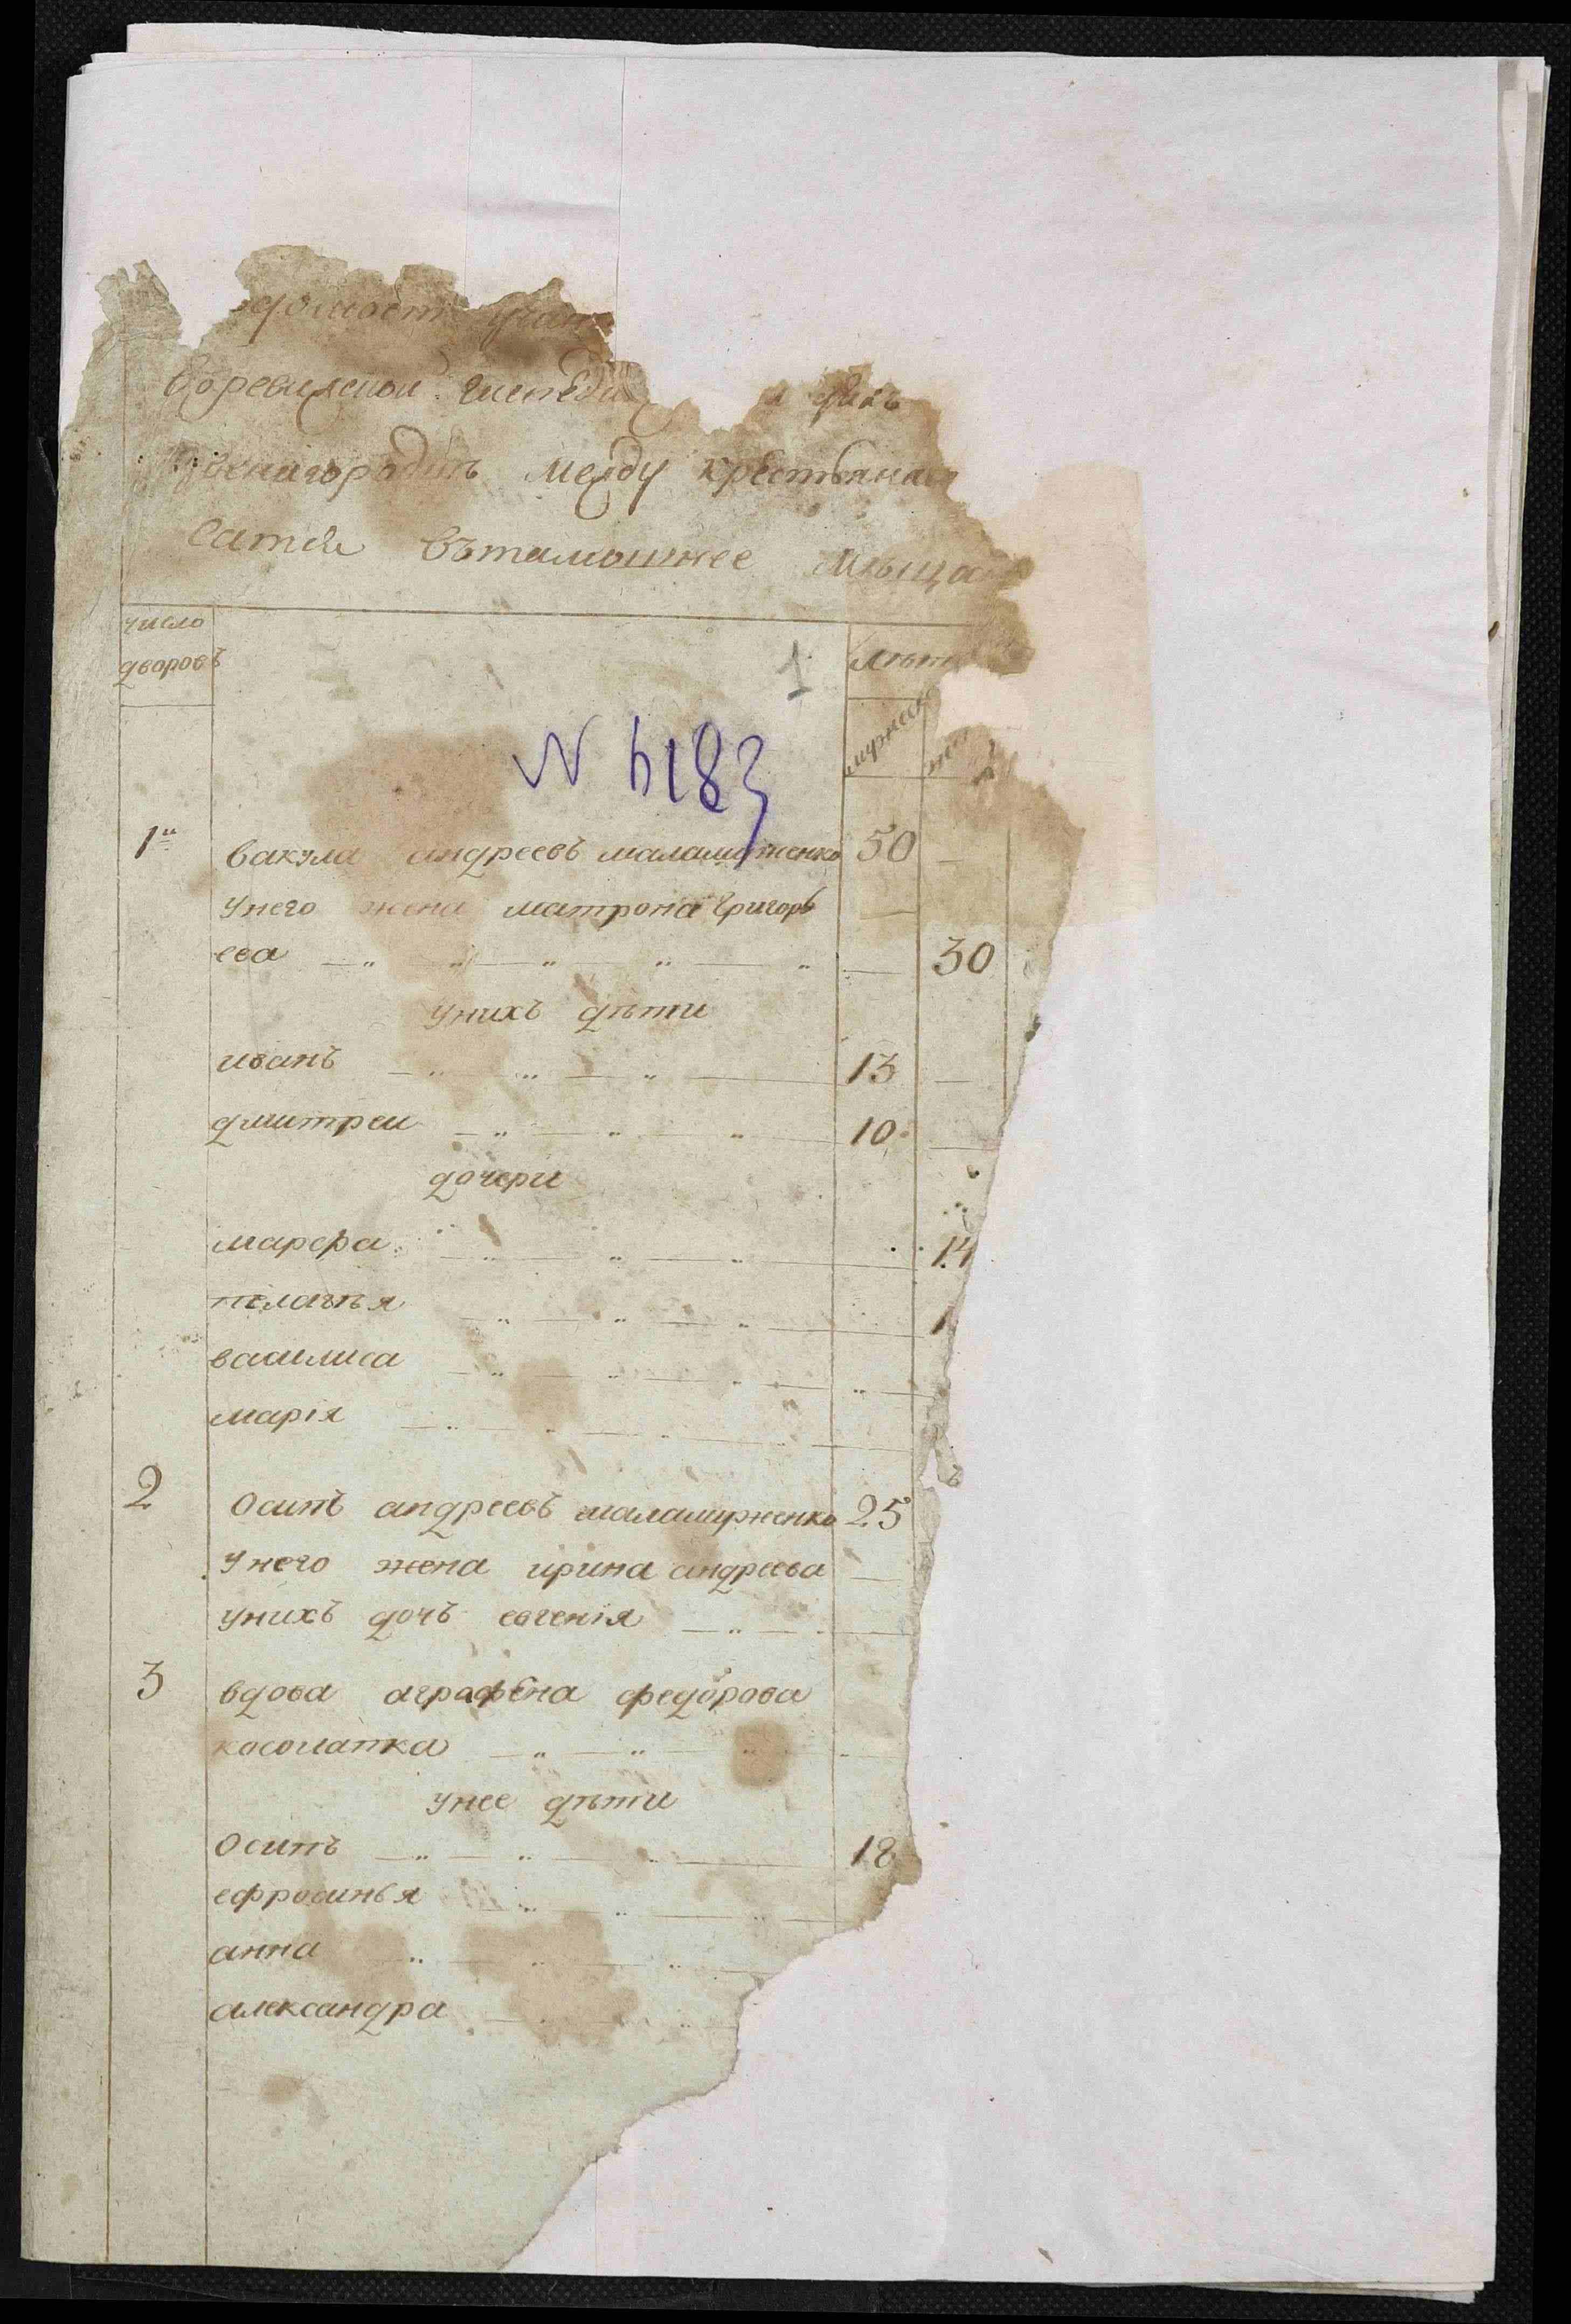 вкоревизской
между крестьянам
сатся вътамошнее мѣща
число
дворовъ
1
лѣт
мужеск
N 6183
1й вакула андреевъ маламуженко 50
унего жена матрона григорь
ева 30
унихъ дѣти
иванъ 13
дмитреи 10
дочери
марфа 14
пелагѣя 1
василиса
марія
2 осипъ андреевъ маламуженко 25
унего жена ирина андреева
унихъ дочь евгенія
3 вдова аграфена федорова
косолапка
унее дѣти
осипъ 18
ефросинья
анна
александра